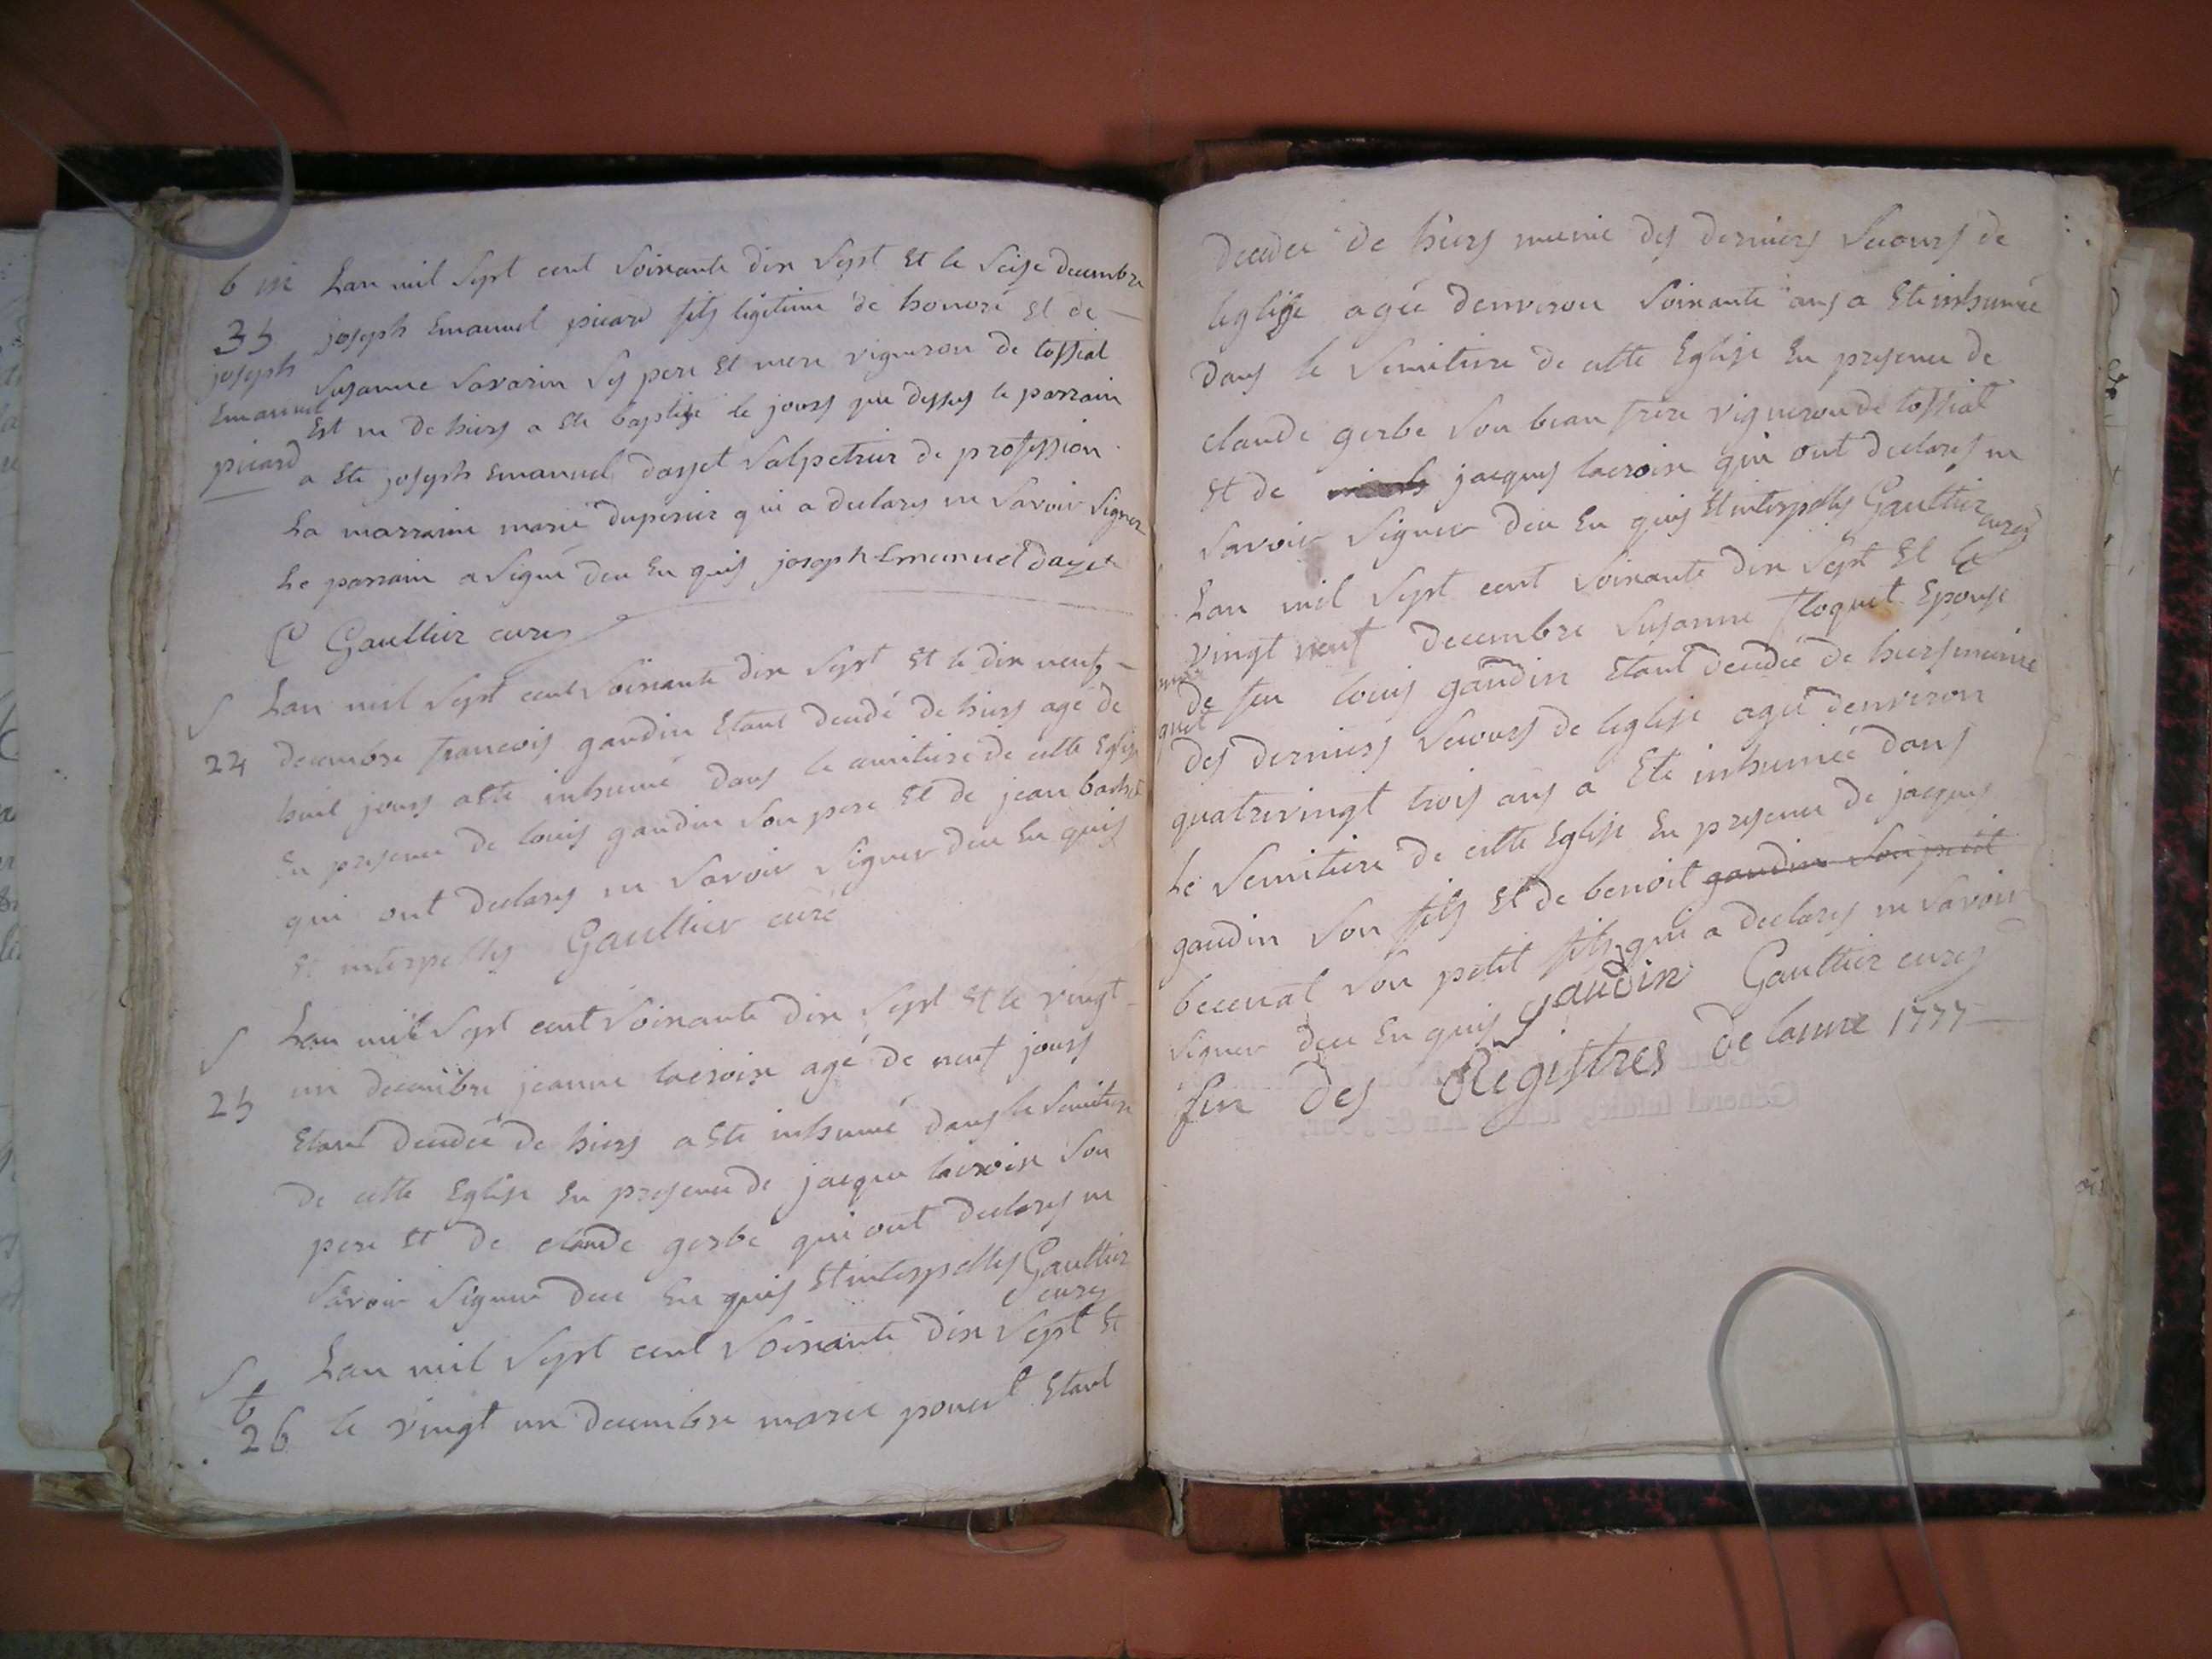 b m Lan mil Sept cent Soixante dix Sept Et le Seise decembre
35 joseph Emanuel picard fils ligitime de honoré Et de
joseph Susanne Savarin Ses pere Et mere vigneron de tossiat
Emanuel Est ne de hiers a Ete baptise le jours que dessus le parrain
picard a Ete joseph Emanuel dasset Salpetrier de profession
La marraine marie duperier qui a declarez ne Savoir Signer
Le parrain a Signé deu En quis joseph Emanuel dazet
Gaultier curez
S Lan mil Sept cent Soixante dix Sept Et le dix neufz
24 decembre francois gaudin Etant decedé de hiers agé de
huit jours a Ete inhumé dans le cemitiere de cette Eglise
En presence de louis gaudin Son pere Et de jean
qui ont declarez ne Savoir Signer deu En quis
Et interpelles Gaultier curé
S Lan mil Sept cent Soixante dix Sept Et le vingt
25 un decembre jeanne lacroix agé de neuf jours
Etant decedée de hiers a Ete inhumé dans le Semitiere
de cette Eglise En presence de jacque lacroix Son
pere Et de claude gerbe qui ont declarez ne
Savoir Signer deu En quis Et interpelles Gaultier
curez
S Lan mil Sept cent Soixante dix Sept Et
t
26 le vingt un decembre marie Etant
decedee de hiers munie des derniers Secours de
leglise agée denviron Soixante ans a Ete inhumée
dans le Semitiere de cette Eglise En presence de
claude gerbe Son beau frere vigneron de tossiat
Et de jacques lacroix qui ont declarez ne
Savoir Signer deu En quis Et interpelles Gaultier curez
Lan mil Sept cent Soixante dix Sept Et le
vingt neuf decembre Susanne floquet Epouse
de feu louis gaudin Etant decedée de hiers munie
des derniers Secours de leglise agée denviron
quatrevingt trois ans a Ete inhumée dans
Le Semitiere de cette Eglise En presence de jacques
gaudin Son fils Et de benoit gaudin Son petit
Son petit fils qui a declarez ne Savoir
Signer deu En quis gaudin Gaultier curez
fin des Registres de lanne 1777